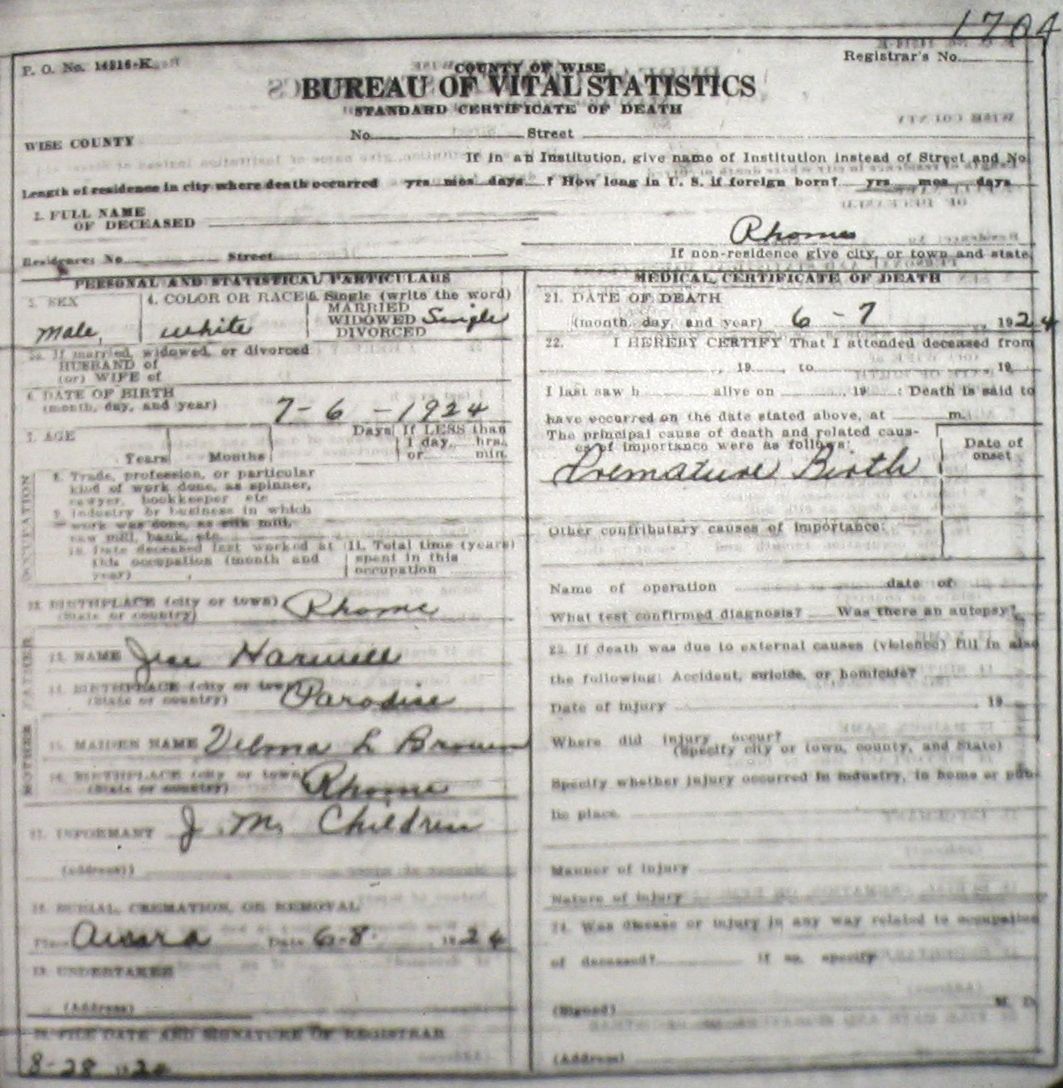 1704
P. O. No. 14916-K
Registrar's No.
COUNTY OF WISE
BUREAU OF VITAL STATISTICS
STANDARD CERTIFICATE OF DEATH
WISE COUNTY
No. Street
If in an Institution, give name of Institution instead of Street and No.
Length of residence in city where death occurred yrs mos days ? How long in U. S. if foreign born? yrs mos days
2. FULL NAME
OF DECEASED
Rhome
Residence: No. Street
If non-residence give city, or town and state.
PERSONAL AND STATISTICAL PARTICULARS
3. SEX
Male,
4. COLOR OR RACE
white
5. Single (write the word)
MARRIED
WIDOWED Single
DIVORCED
5a. If married, widowed, or divorced
HUSBAND of
(or) WIFE of
6. DATE OF BIRTH
(month, day, and year) 7-6-1924
7. AGE
Years Months Days If LESS than
1 day, hrs.
or min.
OCCUPATION
8. Trade, profession, or particular
kind of work done, as spinner,
sawyer, bookkeeper etc
9. Industry or business in which
work was done, as silk mill,
saw mill, bank, etc.
10. Date deceased last worked at
this occupation (month and
year)
11. Total time (years)
spent in this
occupation
12. BIRTHPLACE (city or town) Rhome
(State or country)
FATHER
13. NAME Jess Harwell
14. BIRTHPLACE (city or town) Paradise
(State or country)
MOTHER
15. MAIDEN NAME Velma L Brown
16. BIRTHPLACE (city or town) Rhome
(State or country)
17. INFORMANT J. M. Children
(Address)
18. BURIAL, CREMATION, OR REMOVAL
Place Aurora Date 6-8- 1924
19. UNDERTAKER
(Address)
20. FILE DATE AND SIGNATURE OF REGISTRAR
8-28
MEDICAL CERTIFICATE OF DEATH
21. DATE OF DEATH
(month, day, and year) 6-7 1924
22. I HEREBY CERTIFY That I attended deceased from
, 19 , to , 19
I last saw h alive on , 19 : Death is said to
have occurred on the date stated above, at m.
The principal cause of death and related caus-
es of importance were as follows:
Date of
onset
Premature Birth
Other contributary causes of importance:
Name of operation date of
What test confirmed diagnosis? Was there an autopsy?
23. If death was due to external causes (violence) fill in also
the following: Accident, suicide, or homicide?
Date of injury 19
Where did injury occur?
(Specify city or town, county, and State)
Specify whether injury occurred in industry, in home or pub-
lic place.
Manner of injury
Nature of injury
24. Was disease or injury in any way related to occupation
of deceased? If so, specify
(Signed) M. D.
(Address)